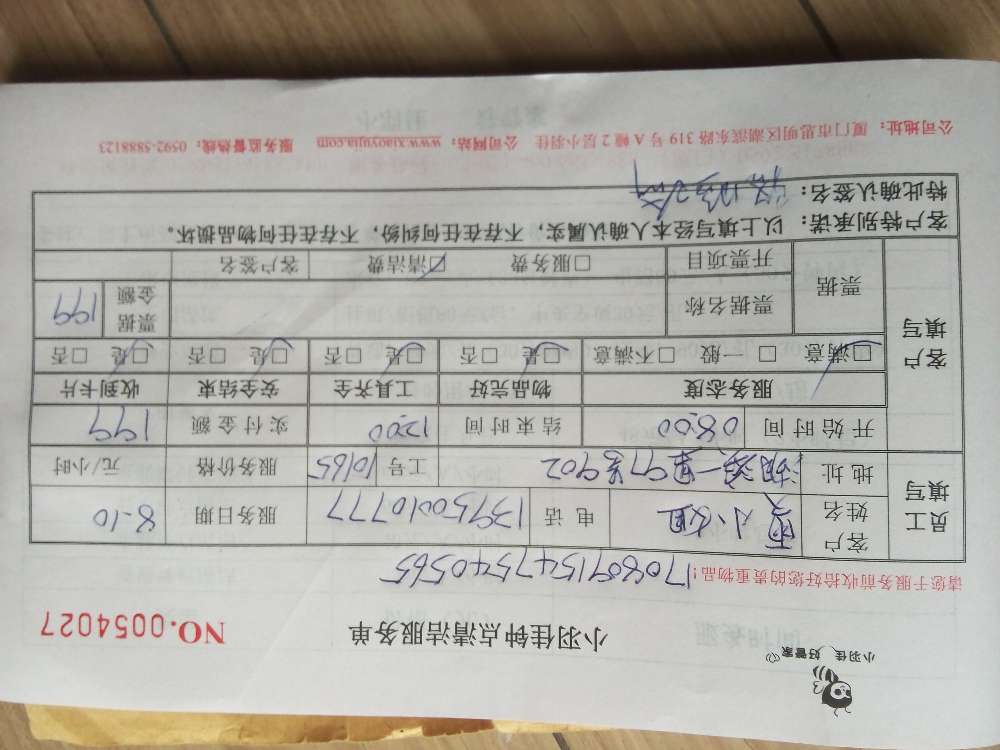 小羽佳 好管家
小羽佳钟点清洁服务单
NO.0054027
请您于服务前收拾好您的贵重物品!
1708091547540565
员工填写
客户姓名 小姐 电话 13950010777 服务日期 8-10
地址 一里97号902 工号 10165 服务价格 元/小时
开始时间 08:00 结束时间 12:00 实付金额 199
客户填写
服务态度 物品完好 工具齐全 安全结束 收到卡片
☑满意 □一般 □不满意 ☑是 □否 ☑是 □否 ☑是 □否 ☑是 □否
票据 票据名称 票据金额 199
开票项目 □服务费 ☑清洁费 客户签名
客户特别承诺:以上填写经本人确认属实,不存在任何纠纷,不存在任何物品损坏。
特此确认签名:
公司地址:厦门市思明区湖滨东路 319 号 A 幢 2 层小羽佳 公司网站:www.xiaoyujia.com 服务监督热线:0592-5888123